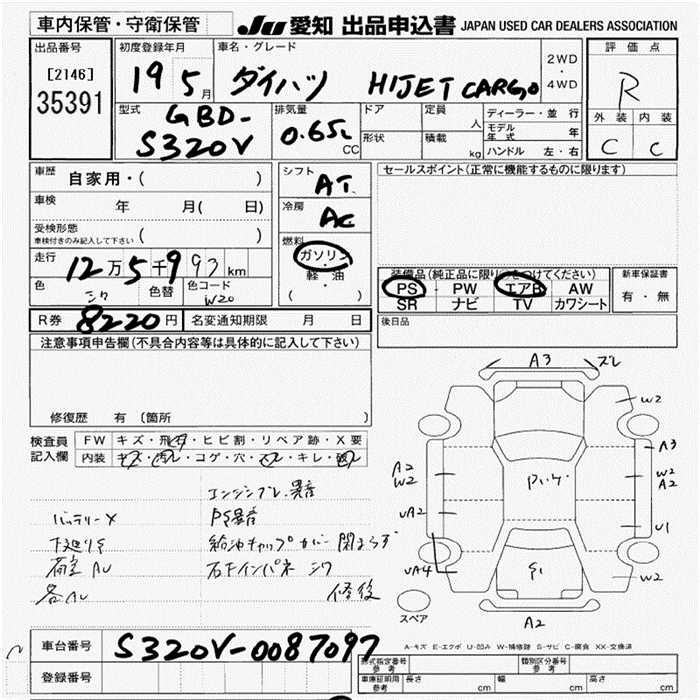 車内保管・守衛保管
JU 愛知 出品申込書 JAPAN USED CAR DEALERS ASSOCIATION
出品番号
[2146]
35391
初度登録年月
19 5月
車名・グレード
ダイハツ HIJET CARGO
2WD
・
4WD
評価点
R
外装 内装
C C
型式
GBD-
S320V
排気量
0.65L
CC
ドア
形状
定員
人
積載
kg
ディーラー・並行
モデル年式 年
ハンドル 左・右
車歴
自家用・( )
車検
年 月( 日)
受検形態
車検付きのみ記入して下さい ( )
走行
12万5千993km
色
シロ
色替
色コード
W20
シフト
AT
冷房
AC
燃料
ガソリン
・
軽油
( )
セールスポイント(正常に機能するものに限ります)
装備品(純正品に限り○をつけてください)
PS・PW エアB AW
SR ナビ TV カワシート
新車保証書
有・無
R券 8220円
名変通知期限 月 日
後日品
注意事項申告欄(不具合内容等は具体的に記入して下さい)
修復歴 有〔箇所
検査員
記入欄
FW キズ・飛石・ヒビ割・リペア跡・X要
内装 キズ・汚レ・コゲ・穴・スレ・キレ・破レ
エンジンブレ.異音
バッテリーX PS異音
下廻りS 給油キャップカバー閉まらず
荷室AU 右下インパネシワ
各AU 修後
A3 ズレ
W2
A3
A2
W2
W2
A2
UA2
U1
UA4
W2
A2
スペア
A-キズ E-エクボ U-凹み W-補修跡 S-サビ C-腐食 XX-交換済
車台番号 S320V-0087097
登録番号
型式指定番号
参考
類別区分番号
参考
車庫証明用
参考
長さ cm 幅 cm 高さ cm